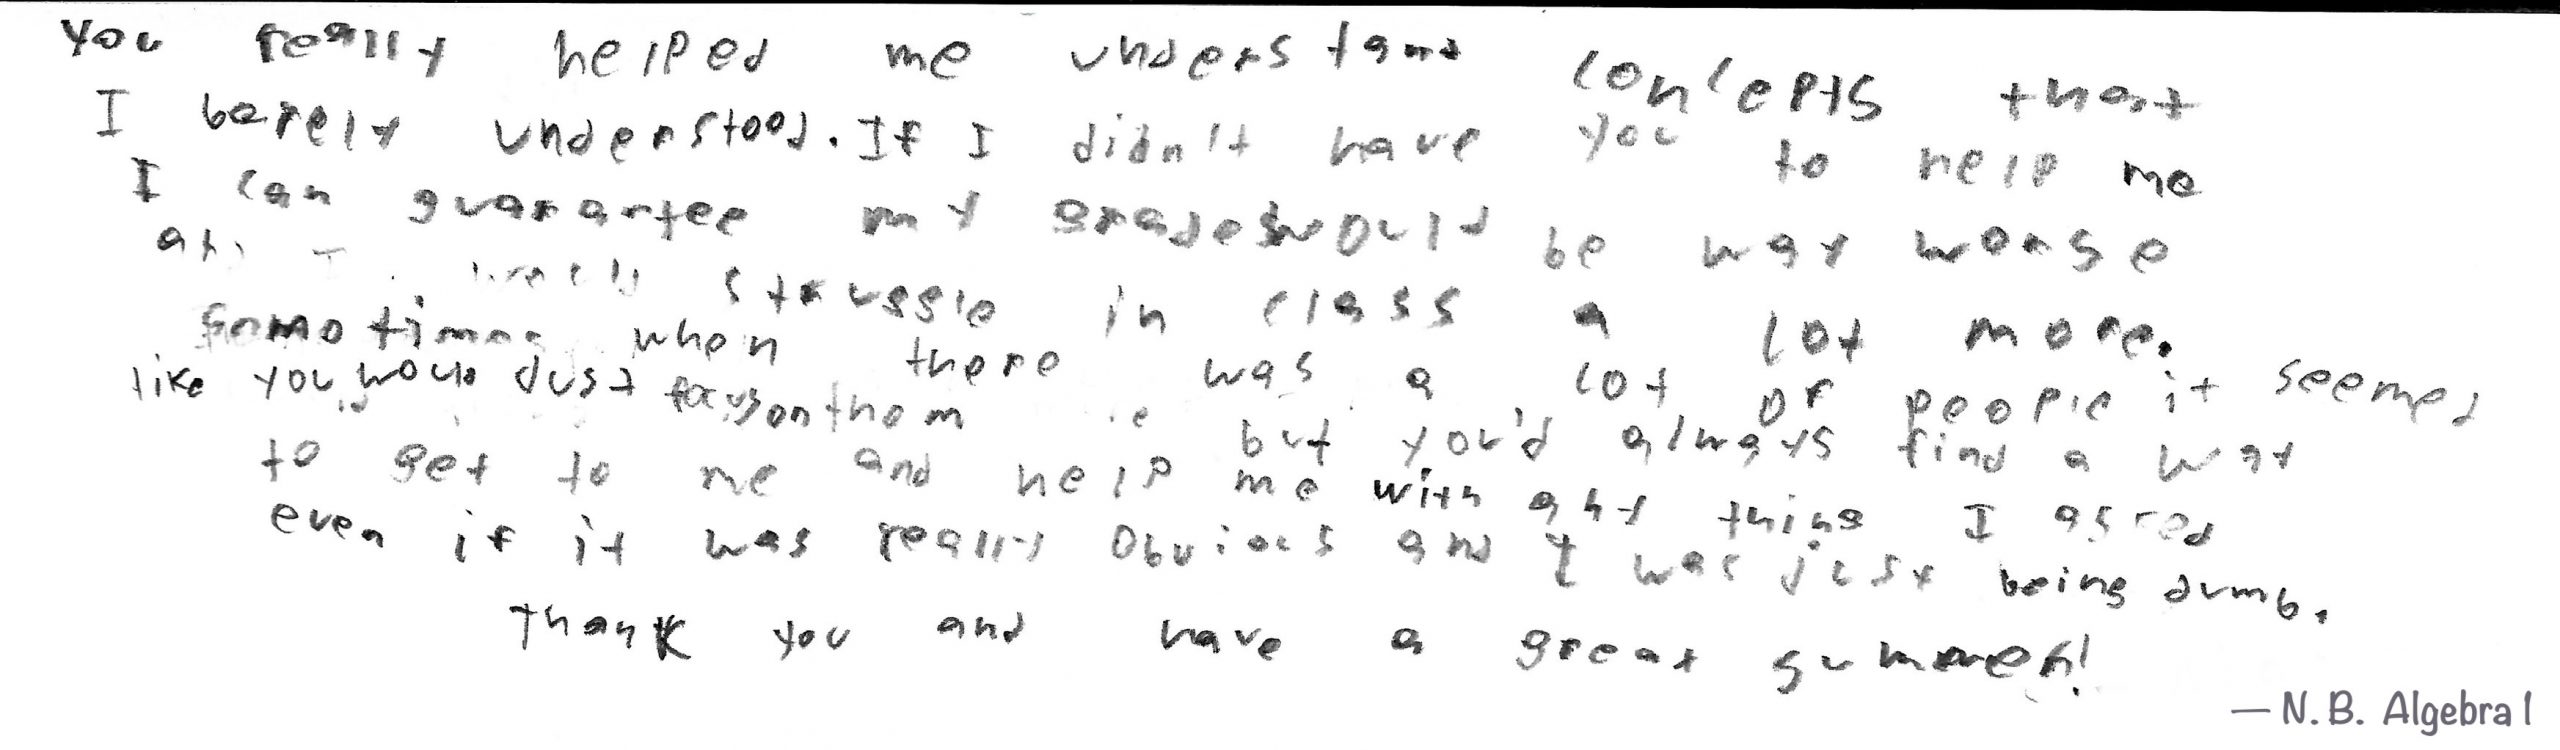 You really helped me understand concepts that
I barely understood. If I didn't have you to help me
I can guarantee my grades would be way worse
struggle in class a lot more.
Sometimes when there was a lot of people it seemed
like you would just focus on them but you'd always find a way
to get to me and help me with any thing I asked
even if it was really obvious and I was just being dumb.
Thank you and have a great summer!
— N.B. Algebra 1